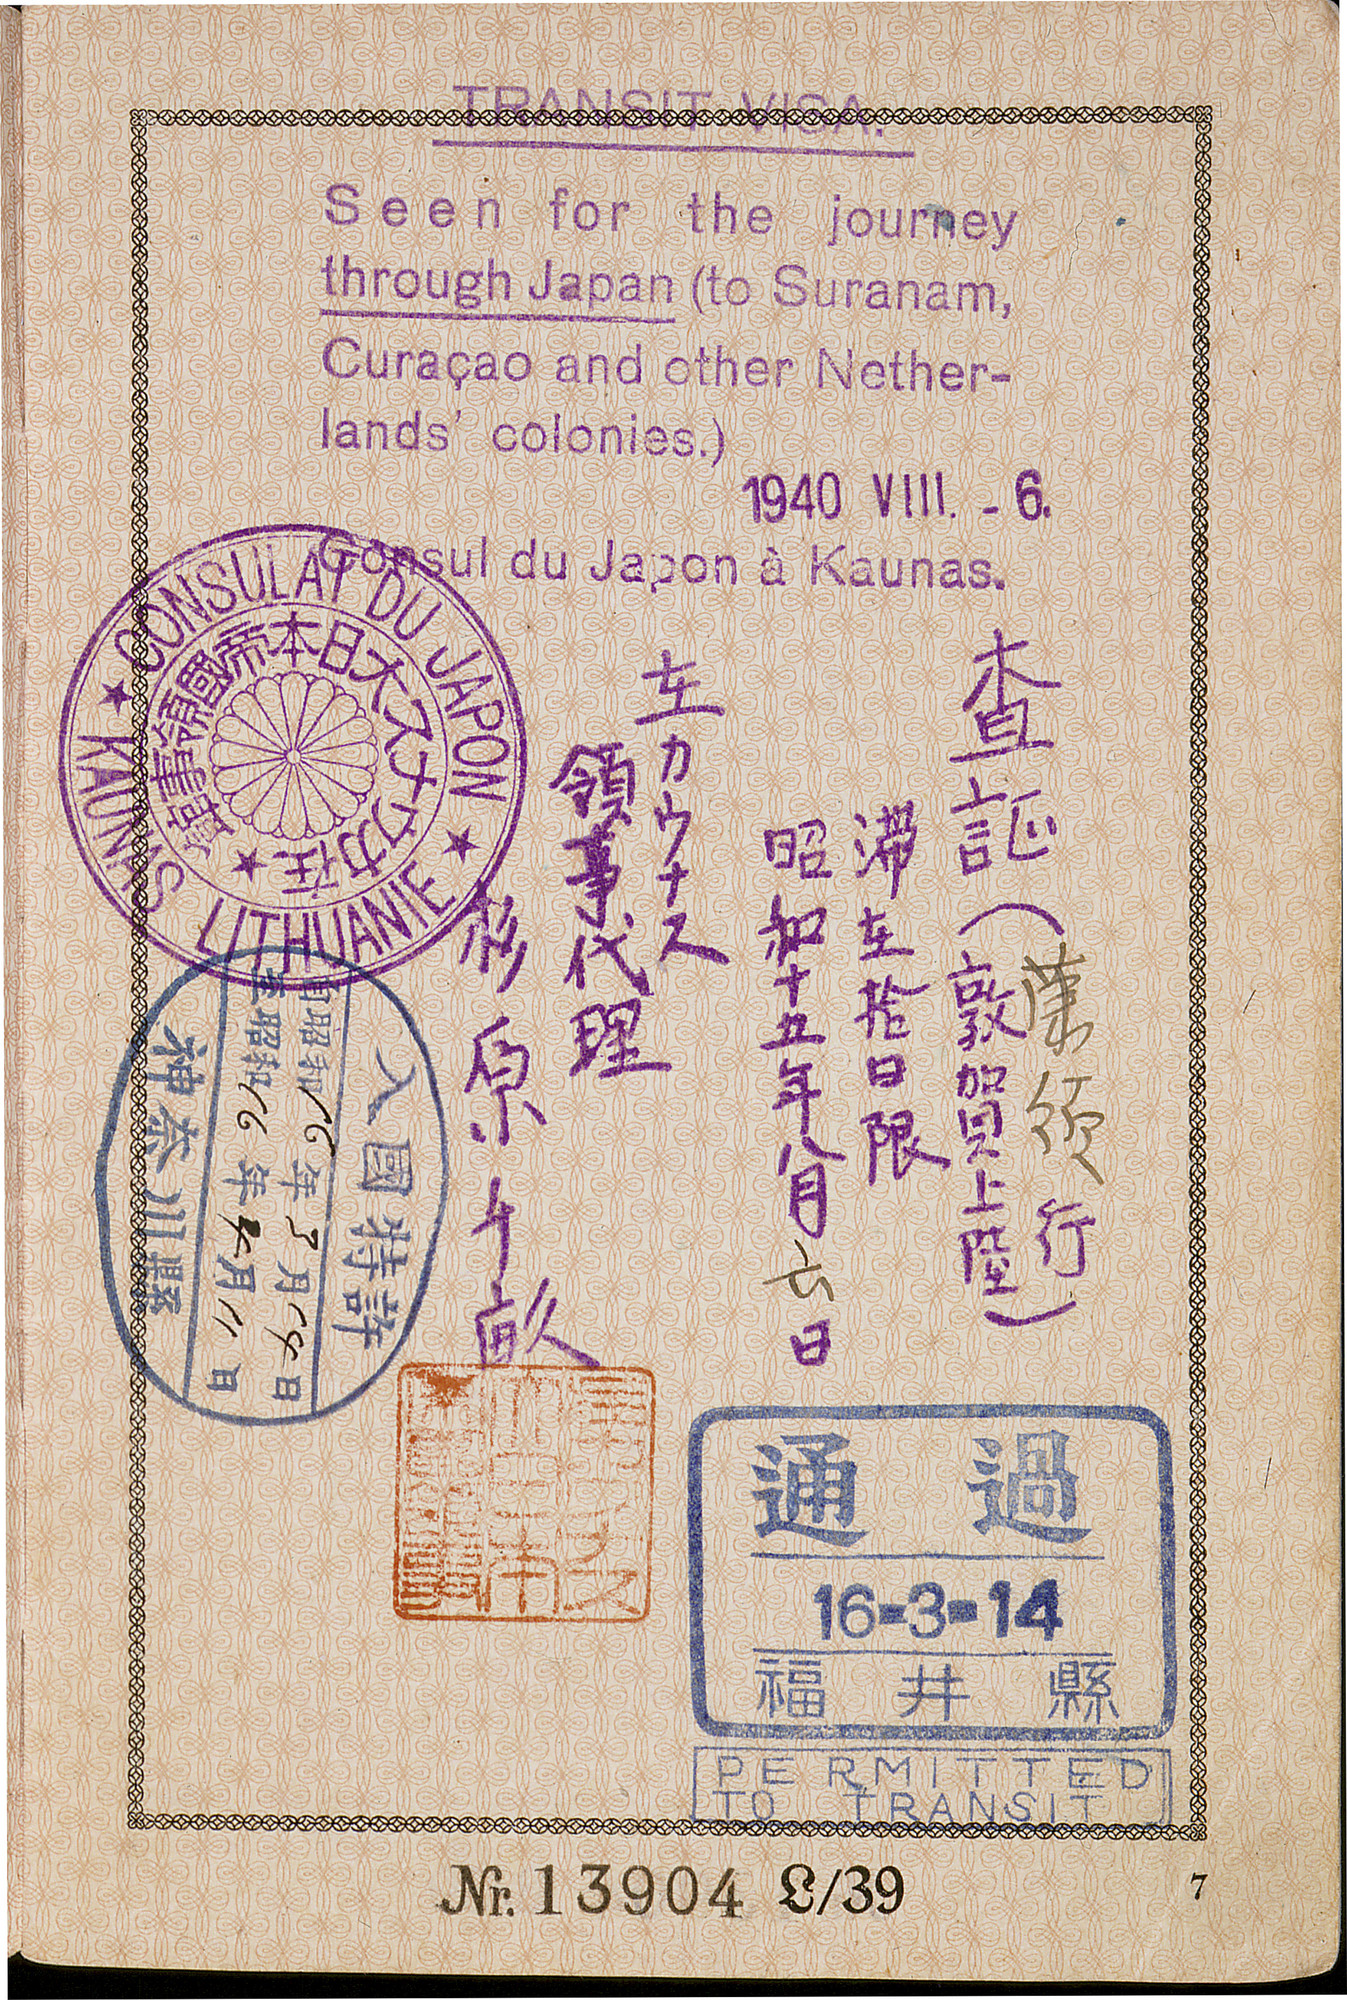 TRANSIT VISA.
Seen for the journey
through Japan (to Suranam,
Curaçao and other Nether-
lands' colonies.)
1940 VIII. - 6.
Consul du Japon à Kaunas.
CONSULAT DU JAPON
KAUNAS LITHUANIE
在カウナス日本帝國領事館
査証
(敦賀上陸)
行
滞在拾日限
昭和十五年八月六日
在カウナス
領事代理
杉原千畝
入國特許
自昭和16年3月14日
至昭和16年月11日
神奈川縣
通過
16-3-14
福井縣
PERMITTED
TO TRANSIT
Nr. 13904 L/39
7